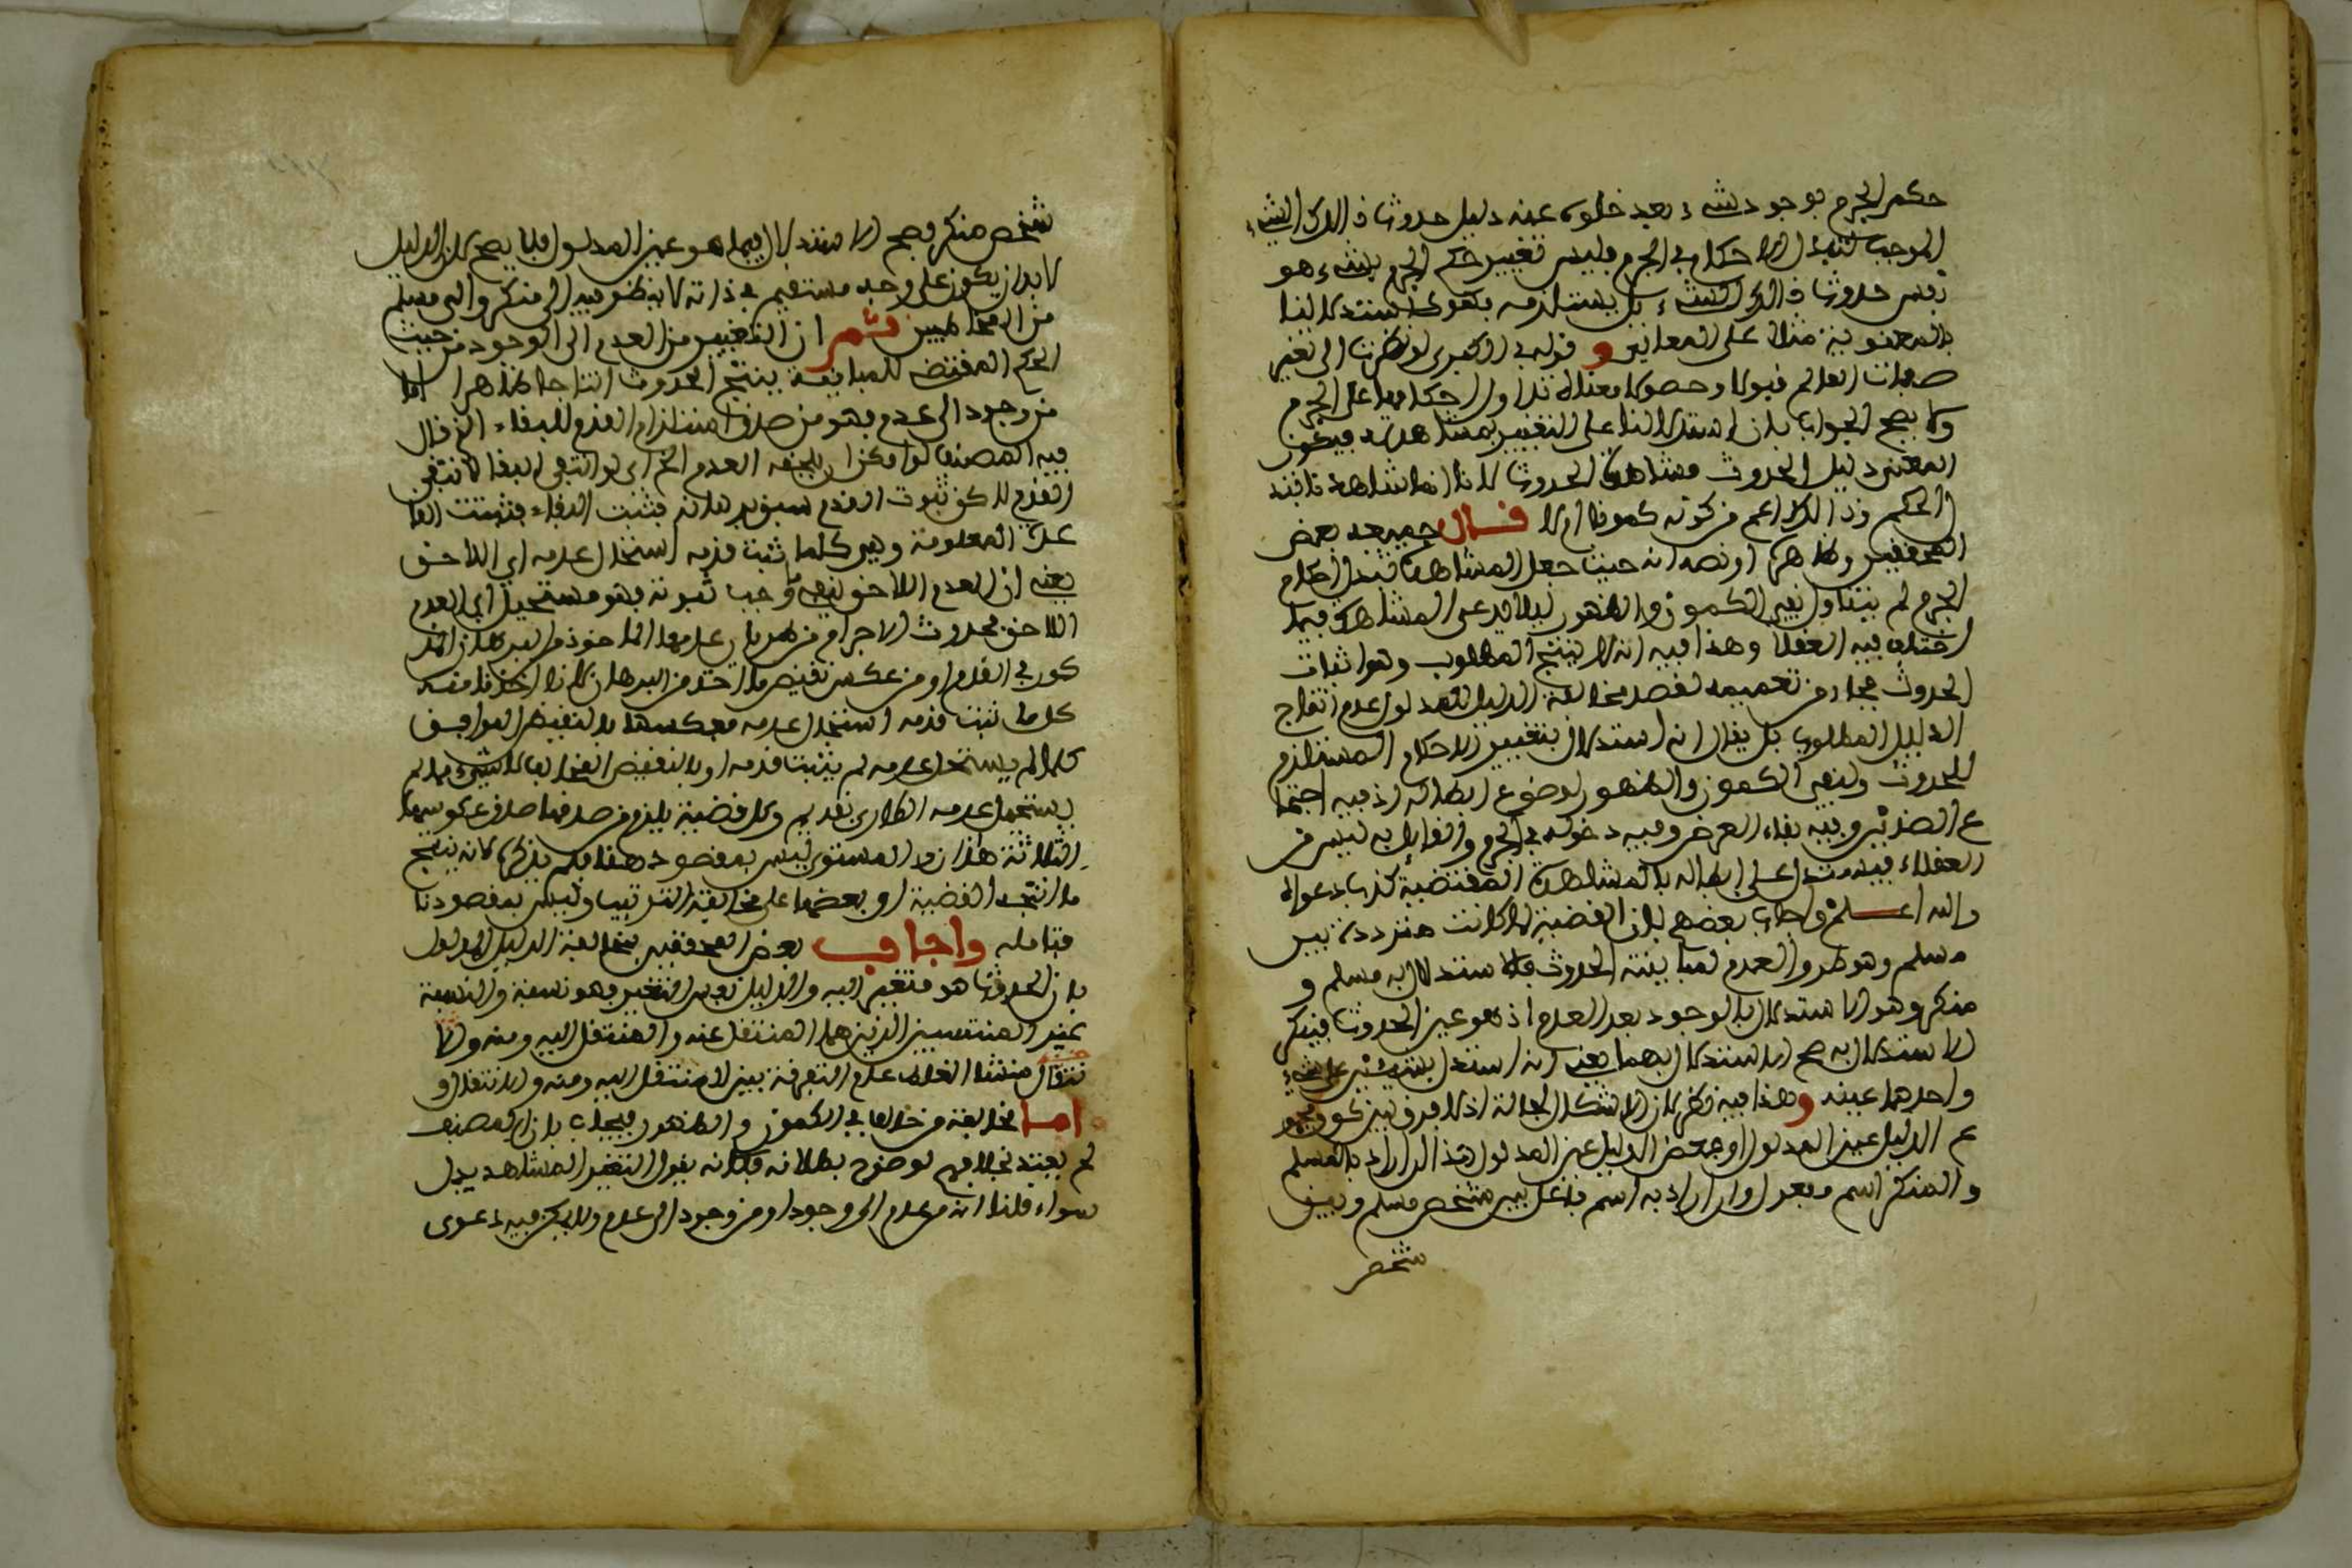 حكم الجرم بوجود شيء بعد خلوه عنه دليل حدوث ذالك الشيء
الموجب لتبدل الاحكام في الجرم فليس تغيير حكم الجرم بشيء هو
نفس حدوث ذالك الشيء بل يستلزمه فهو كاستدلالنا
بالمعنوية مثلا على المعاني و قوله في الكبرى لو نظرنا الى تغير
صفات العالم قبولا وحصولا معناه تداول احكامها على الجرم
ولا يصح الجواب بان استدلالنا على التغيير بمشاهدته فيكون
المعنى دليل الحدوث مشاهدة الحدوث لانا انما شاهدنا تبدل
الحكم وذالك اعم من كونه كمونا ام لا قال جميعه بعض
المحققين وظاهره او نصه انه حيث جعل المشاهدة تبدل احكام
الجرم لم يتناول نفي الكمون والظهور ليلا يدعى المشاهدة فيما
اختلف فيه العقلا وهذا فيه انه لا ينتج المطلوب وهو اثبات
الحدوث فجاء من تعميمه لقصد مخالفة الدليل للمدلول عدم انتاج
الدليل المطلوب بل يقال انه استدلال بتغيير الاحكام المستلزم
للحدوث ولنفي الكمون والظهور لوضوح ابطاله اذ فيه اجتما
ع الضدين وفيه بقاء العرض وفيه دخوله في الجرم والقائل به ليس من
العقلاء فيستدل على ابطاله بالمشاهدة المقتضية كذب دعواه
والله اعلم واجاب بعضهم بان القضية لما كانت مترددة بين
مسلم وهو طرو العدم لمباينته الحدوث فالاستدلال به مسلم و
منكر وهو الاستدلال بالوجود بعد العدم اذ هو عين الحدوث فينكر
الاستدلال به صح الاستدلال بهما يعني انه استدل بشيئين على شيء
واحدهما عينه وهذا فيه نظر لان الاشكال لا محالة اذ لا فرق بين كون مجمو
ع الدليل عين المدلول او بعض الدليل عين المدلول هذا ان اراد بالمسلم
والمنكر اسم مفعول وان اراد به اسم فاعل بين شخص مسلم وبين
شخص
شخص منكر فصح الاستدلال فيما هو عين المدلول فلا يصح لان الدليل
لا بد ان يكون على وجه مستقيم في ذاته لا ينظر فيه الى منكر والى مسلم
من المخاطبين ثم ان التغيير من العدم الى الوجود من حيث
الحكم المقتضي للمباينة ينتج الحدوث انتاجا ظاهرا اما
من وجود الى عدم فهو من صدق استلزام القدم للبقاء الذي قال
فيه المصنف لو امكن ان يلحقه العدم الخ اي لو انتفى البقا لانتفى
القدم لاكن ثبوت القدم سبق برهانه فثبت البقاء فثبتت القا
عدة المعلومة وهي كلما ثبت قدمه استحال عدمه اي اللاحق
يعني ان العدم اللاحق لما وجب ثبوته فهو مستحيل اي العدم
اللاحق فحدوث الاجرام من طريان عدمها الماخوذ من البرهان المذ
كور في القدم او من عكس نقيض ما اخذ من البرهان لانا اخذنا منه
كل ما ثبت قدمه استحال عدمه فعكسها بالنقيض الموافق
كلما لم يستحل عدمه لم يثبت قدمه او بالنقيض المخالف لا شيء مما لم
يستحل عدمه الطاري بقديم وكل قضية يلزم من صدقها صدق عكوسها
الثلاثة هذان والمستوي ليس بمقصود هنا فلم يذكره لانه ينتج
ما انتجته القضية او بعضها على مخالفة الترتيب وليس بمقصودنا
فتامله واجاب بعض المحققين بمخالفة الدليل المدلول
بان الحدوث هو متغير اليه والدليل نفس التغيير فهو نسبة والنسبة
غير المنتسبين الذين هما المنتقل عنه والمنتقل اليه ومنه والا
نتقال منشا الغلط عدم التفرقة بين المنتقل اليه ومنه والانتقال و
اما مخالفة من خالف في الكمون والظهور فيجاب بان المصنف
لم يعتد بخلافهم لوضوح بطلانه فكانه يقول التغير المشاهد يدل
سواء قلنا انه من عدم الى وجود او من وجود الى عدم ولا يكن فيه دعوى